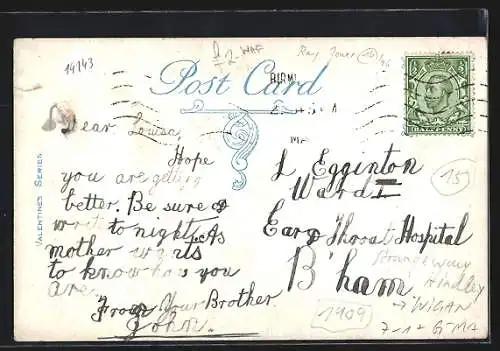 14143
£2-
Post Card
BIRM
HALFPENNY
VALENTINES SERIES
Dear Louisa,
Hope
you are getting
better. Be sure &
write to night. As
mother wants
to know how you
are.
From Your Brother
John.
L Egginton
Ward II
Ear & Throat Hospital
B'ham
15
Strangeways
Hindley
→ WIGAN
1909